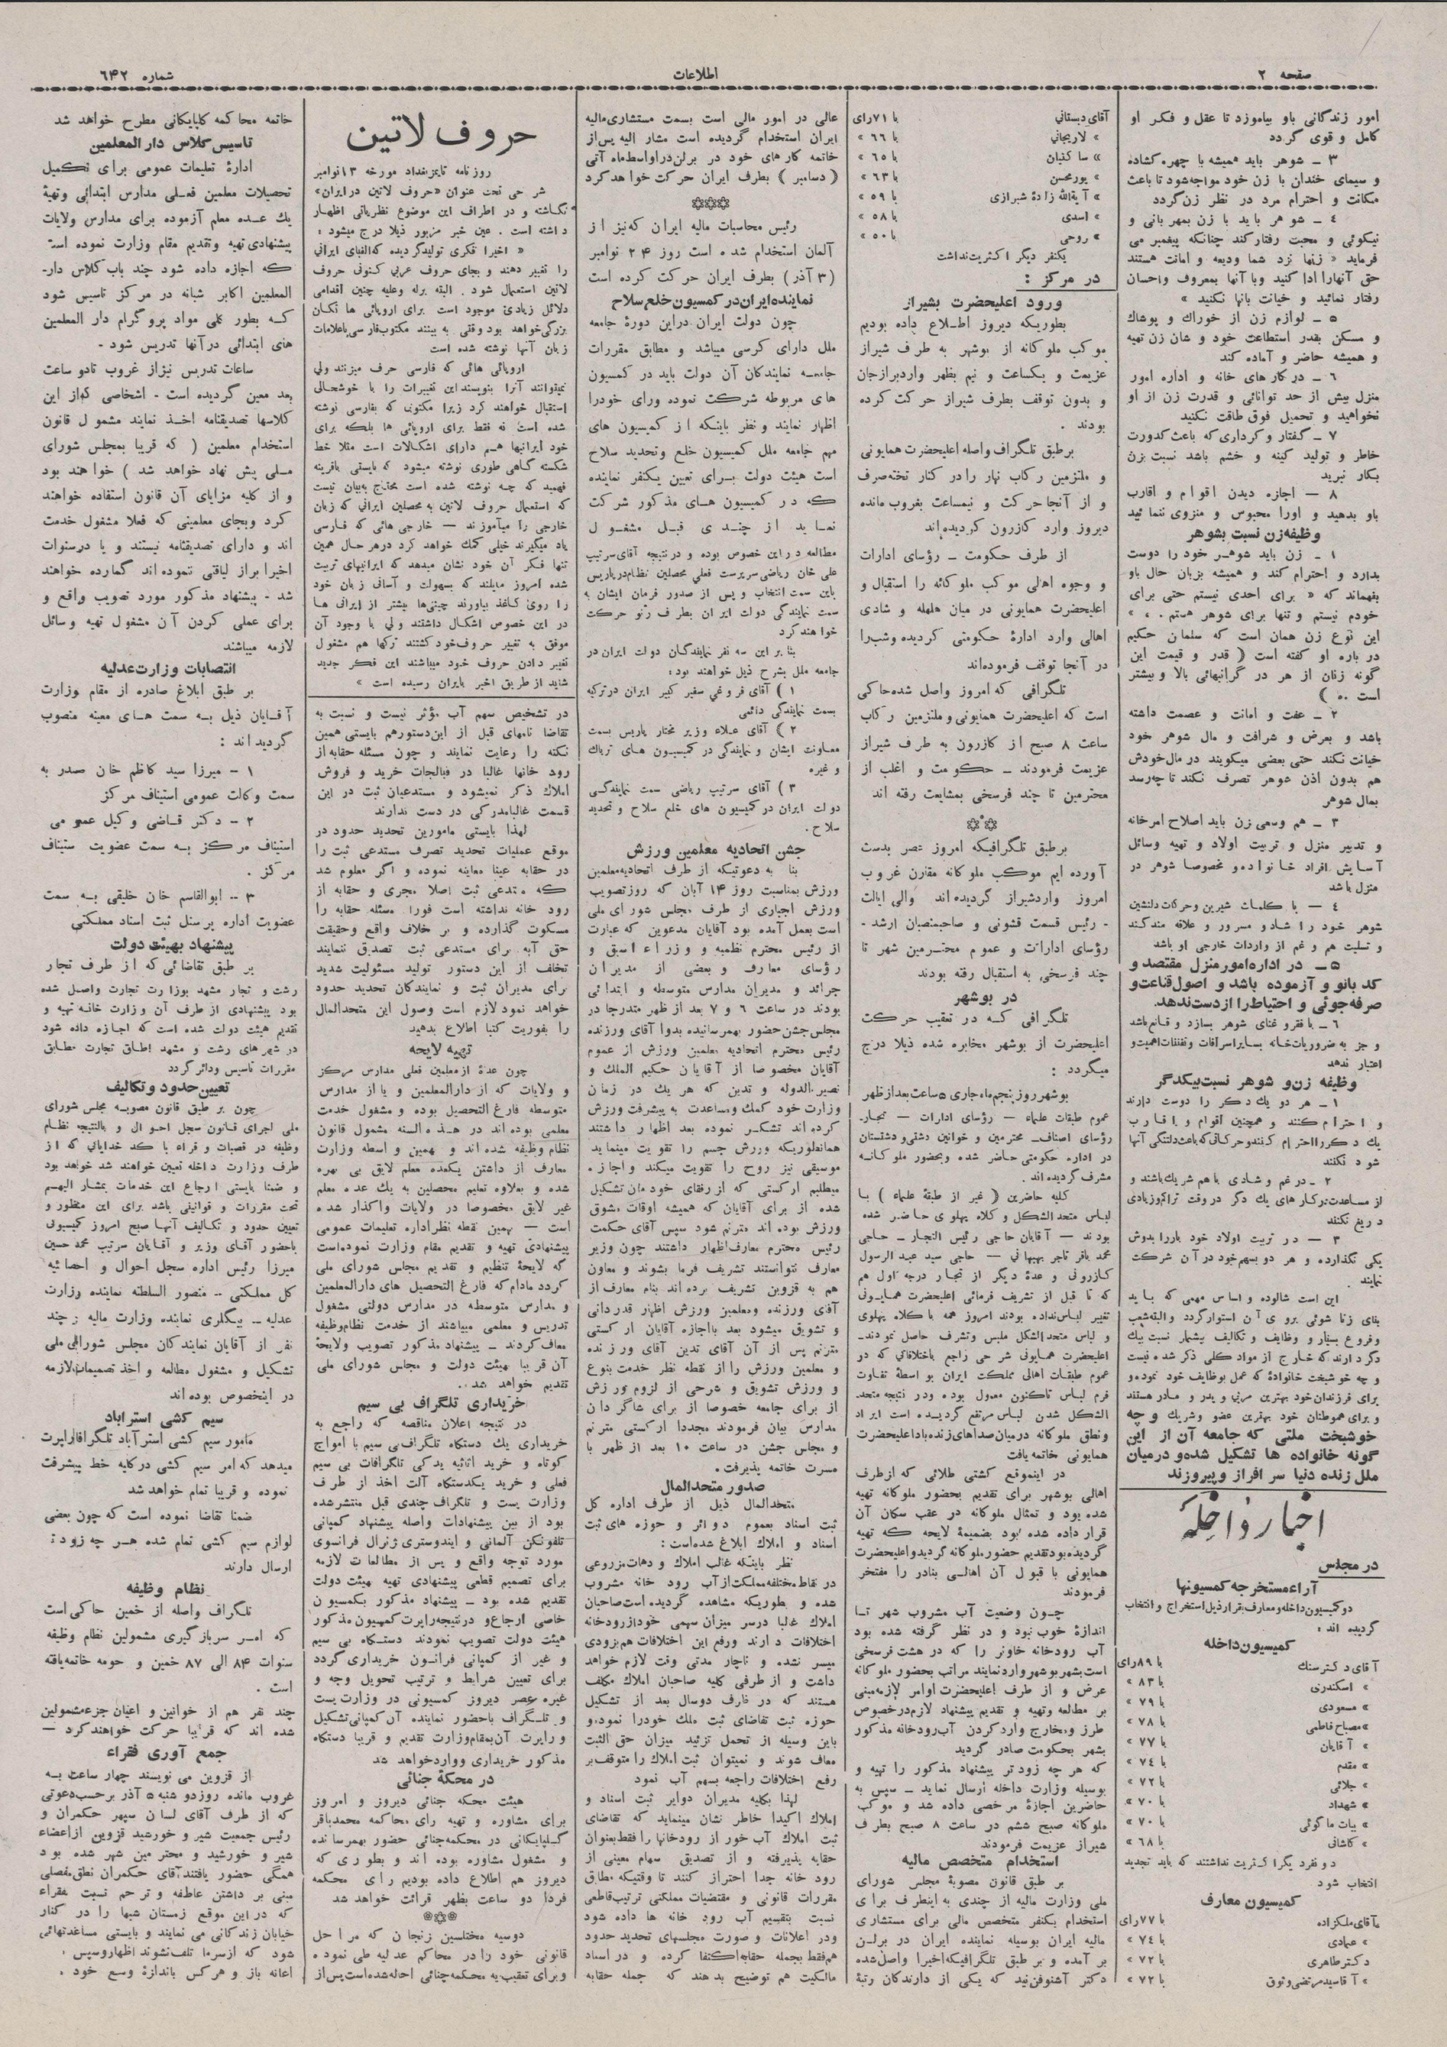 صفحه ۲
اطلاعات
شماره ۶۴۲
امور زندگانی باو بیاموزد تا عقل و فکر او
کامل و قوی گردد
۳ ـ شوهر باید همیشه با چهره گشاده
و سیمای خندان با زن خود مواجه شود تا باعث
مکانت و احترام مرد در نظر زن گردد
۴ ـ شوهر باید با زن بمهربانی و
نیکوئی و محبت رفتار کند چنانکه پیغمبر می
فرماید « زنها نزد شما ودیعه و امانت هستند
حق آنها را ادا کنید وبا آنها بمعروف واحسان
رفتار نمائید و خیانت بانها نکنید »
۵ ـ لوازم زن از خوراك و پوشاك
و مسکن بقدر استطاعت خود و شان زن تهیه
و همیشه حاضر و آماده کند
۶ ـ در کار های خانه و اداره امور
منزل بیش از حد توانائی و قدرت زن از او
نخواهید و تحمیل فوق طاقت نکنید
۷ ـ گفتار و کرداری که باعث کدورت
خاطر و تولید کینه و خشم باشد نسبت بزن
بکار نبرید
۸ — اجازه دیدن اقوام و اقارب
باو بدهید و اورا محبوس و منزوی ننمائید
وظیفه زن نسبت بشوهر
۱ ـ زن باید شوهر خود را دوست
بدارد و احترام کند و همیشه بزبان حال باو
بفهماند که « برای احدی نیستم حتی برای
خودم نیستم و تنها برای شوهر هستم . »
این نوع زن همان است که سلمان حکیم
در باره او گفته است ( قدر و قیمت این
گونه زنان از هر در گرانبهائی بالا و بیشتر
است ... )
۲ ـ عفت و امانت و عصمت داشته
باشد و بعرض و شرافت و مال شوهر خود
خیانت نکند حتی بعضی میگویند در مال خودش
هم بدون اذن شوهر تصرف نکند تا چه رسد
بمال شوهر
۳ ـ هم وسعی زن باید اصلاح امر خانه
و تدبیر منزل و تربیت اولاد و تهیه وسائل
آسایش افراد خانواده و مخصوصا شوهر در
منزل باشد
۴ — با کلمات شیرین و حرکات دلنشین
شوهر خود را شاد و مسرور و علاقه مند کند
و تسلیت هم و غم از واردات خارجی او باشد
۵ ـ در اداره امور منزل مقتصد و
کد بانو و آزموده باشد و اصول قناعت و
صرفه جوئی و احتیاط را از دست ندهد.
۶ ـ با فقر و غنای شوهر بسازد و قانع باشد
و جز به ضروریات خانه بسایر اسرافات و تفننات اهمیت و
اعتبار ندهد
وظیفه زن و شوهر نسبت بیکدگر
۱ ـ هر دو یك دگر را دوست دارند
و احترام کنند و همچنین اقوام و اقارب
یك دگر را احترام کنند و حرکاتی که باعث دلتنگی آنها
شود نکنند
۲ ـ در غم و شادی با هم شریك باشند و
از مساعدت بر کار های یك دگر در وقت تراکم و زیادی
دریغ نکنند
۳ — در تربیت اولاد خود بار را بدوش
یکی نگذارده و هر دو بسهم خود در آن شرکت
نمایند
این است شالوده و اساس مهمی که باید
بقای زنا شوئی بروی آن استوار گردد و البته شعب
وفروع بسیار و وظایف و تکالیف بیشمار نسبت بیك
دگر دارند که خارج از مواد کلی ذکر شده نیست
و چه خوشبخت خانوادۀ که عمل بوظایف خود نموده و
برای فرزندان خود بهترین مربی و پدر و مادر هستند
و برای هموطنان خود بهترین عضو و شریك و چه
خوشبخت ملتی که جامعه آن از این
گونه خانواده ها تشکیل شده و در میان
ملل زنده دنیا سر افراز و پیروزند
اخبار داخله
در مجلس
آراء مستخرجه کمسیونها
دو کمیسیون داخله و معارف بقرار ذیل استخراج و انتخاب
گردیده اند :
کمیسیون داخله
آقای دکتر سنك با ۸۹ رای
» اسکندری با ۸۳ »
» مسعودی با ۷۹ »
» مصباح فاطمی با ۷۸ »
» آقایان با ۷۷ »
» مقدم با ۷۴ »
» جلائی با ۷۲ »
» شهداد با ۷۰ »
» بیات ماکوئی با ۷۰ »
» کاشانی با ۶۸ »
دو نفر دیگر اکثریت نداشتند که باید تجدید
انتخاب شود
کمیسیون معارف
آقای ملکزاده با ۷۷ رای
» عمادی با ۷۴ »
دکتر طاهری با ۷۲ »
» آقا سید مرتضی وثوق با ۷۲ »
آقای دبستانی با ۷۱ رای
» لاریجانی با ۶۶ »
» ساکنیان با ۶۵ »
» پور محسن با ۶۳ »
» آیة الله زادۀ شیرازی با ۵۹ »
» اسدی با ۵۸ »
» روحی با ۵۰ »
یکنفر دیگر اکثریت نداشت
در مرکز :
ورود اعلیحضرت بشیراز
بطوریکه دیروز اطلاع داده بودیم
موکب ملوکانه از بوشهر به طرف شیراز
عزیمت و یکساعت و نیم بظهر وارد برازجان
و بدون توقف بطرف شیراز حرکت کرده
بودند .
بر طبق تلگراف واصله اعلیحضرت همایونی
و ملتزمین رکاب نهار را در کنار تخته صرف
و از آنجا حرکت و نیمساعت بغروب مانده
دیروز وارد کازرون گردیده اند
از طرف حکومت ـ رؤسای ادارات
و وجوه اهالی موکب ملوکانه را استقبال و
اعلیحضرت همایونی در میان هلهله و شادی
اهالی وارد ادارۀ حکومتی گردیده وشب را
در آنجا توقف فرموده اند
تلگرافی که امروز واصل شده حاکی
است که اعلیحضرت همایونی و ملتزمین رکاب
ساعت ۸ صبح از کازرون به طرف شیراز
عزیمت فرمودند ـ حکومت و اغلب از
محترمین تا چند فرسخی بمشایعت رفته اند
بر طبق تلگرافیکه امروز عصر بدست
آورده ایم موکب ملوکانه مقارن غروب
امروز وارد شیراز گردیده اند والی ایالت
ـ رئیس قسمت قشونی و صاحبمنصبان ارشد ـ
رؤسای ادارات و عموم محترمین شهر تا
چند فرسخی به استقبال رفته بودند
در بوشهر
تلگرافی که در تعقیب حرکت
اعلیحضرت از بوشهر مخابره شده ذیلا درج
میگردد :
بوشهر روز پنجم ماه جاری ۵ ساعت بعد از ظهر
عموم طبقات علماء — رؤسای ادارات — تجار ـ
رؤسای اصناف ـ محترمین و خوانین دشتی و دشتستان
در اداره حکومتی حاضر شده وبحضور ملوکانه
مشرف گردیده اند .
کلیه حاضرین ( غیر از طبقۀ علماء ) با
لباس متحد الشکل و کلاه پهلوی حاضر شده
بودند — آقایان حاجی رئیس التجار ـ حاجی
محمد باقر تاجر بهبهانی — حاجی سید عبد الرسول
کازرونی و عدۀ دیگر از تجار درجه اول هم
که تا قبل از تشریف فرمائی اعلیحضرت همایونی
تغییر لباس نداده بودند امروز همه با کلاه پهلوی
و لباس متحد الشکل ملبس و تشرف حاصل نمودند ـ
اعلیحضرت همایونی شرحی راجع باختلافاتی که در
عموم طبقات اهالی مملکت ایران بو اسطۀ تفاوت
فرم لباس تا کنون معمول بوده و در نتیجه متحد
الشکل شدن لباس مرتفع گردیده است ایراد
و نطق ملوکانه در میان صدا های زنده باد اعلیحضرت
همایونی خاتمه یافت
در اینموقع کشتی طلائی که از طرف
اهالی بوشهر برای تقدیم بحضور ملوکانه تهیه
شده بود و تمثال ملوکانه در عقب سکان آن
قرار داده شده بود بضمیمۀ لایحه که تهیه
گردیده بود تقدیم حضور ملوکانه گردید و اعلیحضرت
همایونی با قبول آن اهالی بنادر را مفتخر
فرمودند
چون وضعیت آب مشروب شهر تا
اندازۀ خوب نبود و در نظر گرفته شده بود
آب رودخانه خاویز را که در هشت فرسخی
است بشهر بوشهر وارد نمایند مراتب بحضور ملوکانه
عرض و از طرف اعلیحضرت اوامر لازمه مبنی
بر مطالعه وتهیه و تقدیم پیشنهاد لازم در خصوص
طرز و مخارج وارد کردن آب رودخانه مذکور
بشهر بحکومت صادر گردید
که هر چه زود تر پیشنهاد مذکور را تهیه و
بوسیله وزارت داخله ارسال نماید ـ سپس به
حاضرین اجازۀ مرخصی داده شد و موکب
ملوکانه صبح ششم در ساعت ۸ صبح بطرف
شیراز عزیمت فرمودند
استخدام متخصص مالیه
بر طبق قانون مصوبۀ مجلس شورای
ملی وزارت مالیه از چندی به اینطرف برای
استخدام یکنفر متخصص مالی برای مستشاری
مالیه ایران بوسیله نماینده ایران در برلن
بر آمده و بر طبق تلگرافیکه اخیرا واصل شده
دکتر آشنوفن نید که یکی از دارندگان رتبۀ
عالی در امور مالی است بسمت مستشاری مالیه
ایران استخدام گردیده است مشار الیه پس از
خاتمه کار های خود در برلن در اواسط ماه آتی
( دسامبر ) بطرف ایران حرکت خواهد کرد
رئیس محاسبات مالیه ایران که نیز از
آلمان استخدام شده است روز ۲۴ نوامبر
(۳ آذر) بطرف ایران حرکت کرده است
نماینده ایران در کمسیون خلع سلاح
چون دولت ایران در این دورۀ جامعه
ملل دارای کرسی میباشد و مطابق مقررات
جامعه نمایندگان آن دولت باید در کمسیون
های مربوطه شرکت نموده ورای خود را
اظهار نمایند و نظر باینکه از کمسیون های
مهم جامعه ملل کمسیون خلع وتحدید سلاح
است هیئت دولت برای تعیین یکنفر نماینده
که در کمسیون های مذکور شرکت
نماید از چندی قبل مشغول
مطالعه در این خصوص بوده و در نتیجه آقای سرتیپ
علی خان ریاضی سرپرست فعلی محصلین نظام در پاریس
باین سمت انتخاب و پس از صدور فرمان ایشان به
سمت نمایندگی دولت ایران بطرف ژنو حرکت
خواهند کرد
بنا بر این سه نفر نمایندگان دولت ایران در
جامعه ملل بشرح ذیل خواهند بود :
۱ ) آقای فروغی سفیر کبیر ایران در ترکیه
بسمت نمایندگی دائمی
۲ ) آقای علاء وزیر مختار پاریس بسمت
معاونت ایشان و نمایندگی در کمسیون های تریاك
و غیره
۳ ) آقای سرتیپ ریاضی سمت نمایندگی
دولت ایران در کمسیون های خلع سلاح و تحدید
سلاح .
جشن اتحادیه معلمین ورزش
بنا به دعوتیکه از طرف اتحادیه معلمین
ورزش بمناسبت روز ۱۴ آبان که روز تصویب
ورزش اجباری از طرف مجلس شورای ملی
است بعمل آمده بود آقایان مدعوین که عبارت
از رئیس محترم نظمیه و وزراء اسبق و
رؤسای معارف و بعضی از مدیران
جرائد و مدیران مدارس متوسطه و ابتدائی
بودند در ساعت ۶ و ۷ بعد از ظهر متدرجا در
مجلس جشن حضور بهم رسانیده بدوا آقای ورزنده
رئیس محترم اتحادیه معلمین ورزش از عموم
آقایان مخصوصا از آقایان حکیم الملك و
نصیر الدوله و تدین که هر یك در زمان
وزارت خود کمك و مساعدت به پیشرفت ورزش
کرده اند تشکر نموده بعد اظهار داشتند
همانطوریکه ورزش جسم را تقویت مینماید
موسیقی نیز روح را تقویت میکند و اجازه
میطلبم ارکستی که از رفقای خودمان تشکیل
شده از برای آقایان که همیشه اوقات مشوق
ورزش بوده اند مترنم شود سپس آقای حکمت
رئیس محترم معارف اظهار داشتند چون وزیر
معارف نتوانستند تشریف فرما بشوند و معاون
هم به قزوین تشریف برده اند بنام معارف از
آقای ورزنده و معلمین ورزش اظهار قدردانی
و تشویق میشود بعد با اجازه آقایان ارکستی
مترنم پس از آن آقای تدین آقای ورزنده
و معلمین ورزش را از نقطه نظر خدمت بنوع
و ورزش تشویق و شرحی از لزوم ورزش
از برای جامعه خصوصا از برای شاگردان
مدارس بیان فرمودند مجددا ارکستی مترنم
و مجلس جشن در ساعت ۱۰ بعد از ظهر با
مسرت خاتمه پذیرفت .
صدور متحد المال
متحد المال ذیل از طرف اداره کل
ثبت اسناد بعموم دوائر و حوزه های ثبت
اسناد و املاك ابلاغ شده است :
نظر باینکه غالب املاك و دهات مزروعی
در نقاط مختلفه مملکت از آب رود خانه مشروب
شده و بطوریکه مشاهده گردیده است صاحبان
املاك غالبا در سر میزان سهمی خود از رودخانه
اختلافات دارند ورفع این اختلافات هم بزودی
میسر نشده و ناچار مدتی وقت لازم خواهد
داشت و از طرفی کلیه صاحبان املاك مکلف
هستند که در ظرف دوسال بعد از تشکیل
حوزه ثبت تقاضای ثبت ملك خود را نموده و
باین وسیله از تحمل تزئید میزان حق الثبت
معاف شوند و نمیتوان ثبت املاك را متوقف بر
رفع اختلافات راجعه بسهم آب نمود
لهذا بکلیه مدیران دوایر ثبت اسناد و
املاك اکیدا خاطر نشان مینماید که تقاضای
ثبت املاك آب خور از رودخانها را فقط بعنوان
حقابه پذیرفته و از تصدیق سهام معینی از
رود خانه جدا احتراز کنند تا وقتیکه مطابق
مقررات قانونی و مقتضیات مملکتی ترتیب قاطعی
نسبت بتقسیم آب رود خانه ها داده شود
و در اعلانات و صورت مجلسهای تحدید حدود
هم فقط بجمله حقابه اکتفا کرده و در اسناد
مالکیت هم توضیح بدهند که جمله حقابه
حروف لاتین
روزنامه تایمز بغداد مورخه ۱۳ نوامبر
شرحی تحت عنوان «حروف لاتین در ایران»
نگاشته و در اطراف این موضوع نظریاتی اظهار
داشته است . عین خبر مزبور ذیلا درج میشود :
« اخیرا فکری تولید گردیده که الفبای ایرانی
را تغییر دهند و بجای حروف عربی کنونی حروف
لاتین استعمال شود . البته بر له وعلیه چنین اقدامی
دلائل زیادی موجود است برای اروپائی ها تکان
بزرگی خواهد بود وقتی به بینند مکتوب فارسی باعلامات
زبان آنها نوشته شده است
اروپائی هائی که فارسی حرف میزنند ولی
نمیتوانند آنرا بنویسند این تغییرات را با خوشحالی
استقبال خواهند کرد زیرا مکتوبی که بفارسی نوشته
شده است نه فقط برای اروپائی ها بلکه برای
خود ایرانیها هم دارای اشکالات است مثلا خط
شکسته گاهی طوری نوشته میشود که بایستی باقرینه
فهمید که چه نوشته شده است محتاج به بیان نیست
که استعمال حروف لاتین به محصلین ایرانی که زبان
خارجی را میآموزند — خارجی هائی که فارسی
یاد میگیرند خیلی کمك خواهد کرد در هر حال همین
تنها فکر آن خود نشان میدهد که ایرانیهای تربیت
شده امروز مایلند که بسهولت و آسانی زبان خود
را روی کاغذ بیاورند چینی ها بیشتر از ایرانی ها
در این خصوص اشکال داشتند ولی با وجود آن
موفق به تغییر حروف خود گشتند ترکها هم مشغول
تغییر دادن حروف خود میباشند این فکر جدید
شاید از طریق اخیر بایران رسیده است »
در تشخیص سهم آب مؤثر نیست و نسبت به
تقاضا نامهای قبل از این دستور هم بایستی همین
نکته را رعایت نمایند و چون مسئله حقابه از
رود خانها غالبا در قبالجات خرید و فروش
املاك ذکر نمیشود و مستدعیان ثبت در این
قسمت غالبا مدرکی در دست ندارند
لهذا بایستی مامورین تحدید حدود در
موقع عملیات تحدید تصرف مستدعی ثبت را
در حقابه عینا معاینه نموده و اگر معلوم شد
که مستدعی ثبت اصلا مجری و حقابه از
رود خانه نداشته است فورا مسئله حقابه را
مسکوت گذارده و بر خلاف واقع وحقیقت
حق آبه برای مستدعی ثبت تصدیق ننمایند
تخلف از این دستور تولید مسئولیت شدید
برای مدیران ثبت و نمایندگان تحدید حدود
خواهد نمود لازم است وصول این متحد المال
را بفوریت کتبا اطلاع بدهید
تهیه لایحه
چون عدۀ از معلمین فعلی مدارس مرکز
و ولایات که از دار المعلمین و یا از مدارس
متوسطه فارغ التحصیل بوده و مشغول خدمت
معلمی بوده اند در هذه السنه مشمول قانون
نظام وظیفه شده اند و بهمین و اسطه وزارت
معارف از داشتن یکعده معلم لایق بی بهره
شده و بعلاوه تعلیم محصلین به یك عده معلم
غیر لایق مخصوصا در ولایات واگذار شده
است — بهمین نقطه نظر اداره تعلیمات عمومی
پیشنهادی تهیه و تقدیم مقام وزارت نموده است
که لایحۀ تنظیم و تقدیم مجلس شورای ملی
گردد مادام که فارغ التحصیل های دار المعلمین
و مدارس متوسطه در مدارس دولتی مشغول
تدریس و معلمی میباشند از خدمت نظام وظیفه
معاف گردند ـ پیشنهاد مذکور تصویب و لایحۀ
آن قریبا بهیئت دولت و مجلس شورای ملی
تقدیم خواهد شد .
خریداری تلگراف بی سیم
در نتیجه اعلان مناقصه که راجع به
خریداری یك دستگاه تلگراف بی سیم با امواج
کوتاه و خرید اثاثیه یدکی تلگرافات بی سیم
فعلی و خرید یکدستگاه آلت اخذ از طرف
وزارت پست و تلگراف چندی قبل منتشر شده
بود از بین پیشنهادات واصله پیشنهاد کمپانی
تلفونکن آلمانی و ایندوستری ژنرال فرانسوی
مورد توجه واقع و پس از مطالعات لازمه
برای تصمیم قطعی پیشنهادی تهیه هیئت دولت
تقدیم شده بود ـ پیشنهاد مذکور بکمسیون
خاصی ارجاع و در نتیجه راپرت کمیسیون مذکور
هیئت دولت تصویب نمودند دستگاه بی سیم
و غیر از کمپانی فرانسون خریداری گردد
برای تعیین شرایط و ترتیب تحویل وجه و
غیره عصر دیروز کمسیونی در وزارت پست
و تلگراف باحضور نماینده آن کمپانی تشکیل
و راپرت آن بمقام وزارت تقدیم و قریبا دستگاه
مذکور خریداری ووارد خواهد شد
در محکمۀ جنائی
هیئت محکمه جنائی دیروز و امروز
برای مشاوره و تهیه رای محاکمه محمد باقر
گلپایگانی در محکمه جنائی حضور بهمرسانده
و مشغول مشاوره بوده اند و بطوری که
دیروز هم اطلاع داده بودیم رای محکمه
فردا دو ساعت بظهر قرائت خواهد شد
دوسیه مختلسین زنجان که مراحل
قانونی خود را در محاکم عدلیه طی نموده
و برای تعقیب به محکمه جنائی احاله شده است پس از
خاتمه محاکمه گلپایگانی مطرح خواهد شد
تاسیس کلاس دار المعلمین
ادارۀ تعلیمات عمومی برای تکمیل
تحصیلات معلمین فعلی مدارس ابتدائی وتهیۀ
یك عده معلم آزموده برای مدارس ولایات
پیشنهادی تهیه وتقدیم مقام وزارت نموده است
که اجازه داده شود چند باب کلاس دار ـ
المعلمین اکابر شبانه در مرکز تاسیس شود
که بطور کلی مواد پروگرام دار المعلمین
های ابتدائی در آنها تدریس شود .
ساعات تدریس نیز از غروب تا دو ساعت
بعد معین گردیده است ـ اشخاصی که از این
کلاسها تصدیقنامه اخذ نمایند مشمول قانون
استخدام معلمین ( که قریبا بمجلس شورای
ملی پیش نهاد خواهد شد ) خواهند بود
و از کلیه مزایای آن قانون استفاده خواهند
کرد وبجای معلمینی که فعلا مشغول خدمت
اند و دارای تصدیقنامه نیستند و یا در سنوات
اخیر ابراز لیاقتی ننموده اند گمارده خواهند
شد . پیشنهاد مذکور مورد تصویب واقع و
برای عملی کردن آن مشغول تهیه وسائل
لازمه میباشند
انتصابات وزارت عدلیه
بر طبق ابلاغ صادره از مقام وزارت
آقایان ذیل به سمت های معینه منصوب
گردیده اند :
۱ - میرزا سید کاظم خان صدر به
سمت وکالت عمومی استیناف مرکز
۲ - دکتر قاضی وکیل عمومی
استیناف مرکز به سمت عضویت ستیناف
مرکز .
۳ - ابوالقاسم خان خلیقی به سمت
عضویت اداره پرسنل ثبت اسناد مملکتی
پیشنهاد بهیئت دولت
بر طبق تقاضائی که از طرف تجار
رشت و تجار مشهد بوزارت تجارت واصل شده
بود پیشنهادی از طرف آن وزارت خانه تهیه و
تقدیم هیئت دولت شده است که اجازه داده شود
در شهر های رشت و مشهد اطاق تجارت مطابق
مقررات تاسیس و دائر گردد
تعیین حدود و تکالیف
چون بر طبق قانون مصوبه مجلس شورای
ملی اجرای قانون سجل احوال و بالنتیجه نظام
وظیفه در قصبات و قراء با کد خدایانی که از
طرف وزارت داخله تعیین خواهند شد خواهد بود
و ضمنا بایستی ارجاع این خدمات بمشار الیهم
تحت مقررات و قوانینی باشد برای این منظور و
تعیین حدود و تکالیف آنها صبح امروز کمیسیونی
باحضور آقای وزیر و آقایان سرتیپ محمد حسین
میرزا رئیس اداره سجل احوال و احصائیه
کل مملکتی ـ منصور السلطنه نماینده وزارت
عدلیه ـ بیگلری نماینده وزارت مالیه و چند
نفر از آقایان نمایندگان مجلس شورای ملی
تشکیل و مشغول مطالعه و اخذ تصمیمات لازمه
در اینخصوص بوده اند
سیم کشی استراباد
مامور سیم کشی استر آباد تلگرافا راپرت
میدهد که امر سیم کشی در کلیه خط پیشرفت
نموده و قریبا تمام خواهد شد
ضمنا تقاضا نموده است که چون بعضی
لوازم سیم کشی تمام شده هر چه زودتر
ارسال دارند
نظام وظیفه
تلگراف واصله از خمین حاکی است
که امر سربازگیری مشمولین نظام وظیفه
سنوات ۸۴ الی ۸۷ خمین و حومه خاتمه یافته
است .
چند نفر هم از خوانین و اعیان جزء مشمولین
شده اند که قریبا حرکت خواهند کرد —
جمع آوری فقراء
از قزوین می نویسند چهار ساعت به
غروب مانده روز دوشنبه ۵ آذر بر حسب دعوتی
که از طرف آقای لسان سپهر حکمران و
رئیس جمعیت شیر و خورشید قزوین از اعضاء
شیر و خورشید و محترمین شهر شده بود
همگی حضور یافتند آقای حکمران نطق مفصلی
مبنی بر داشتن عاطفه و ترحم نسبت بفقراء
که در این موقع زمستان شبها را در کنار
خیابان زندگانی می نمایند و بایستی مساعدتهائی
شود که از سرما تلف نشوند اظهار وسپس
اعانه باز و هر کس باندازۀ وسع خود .